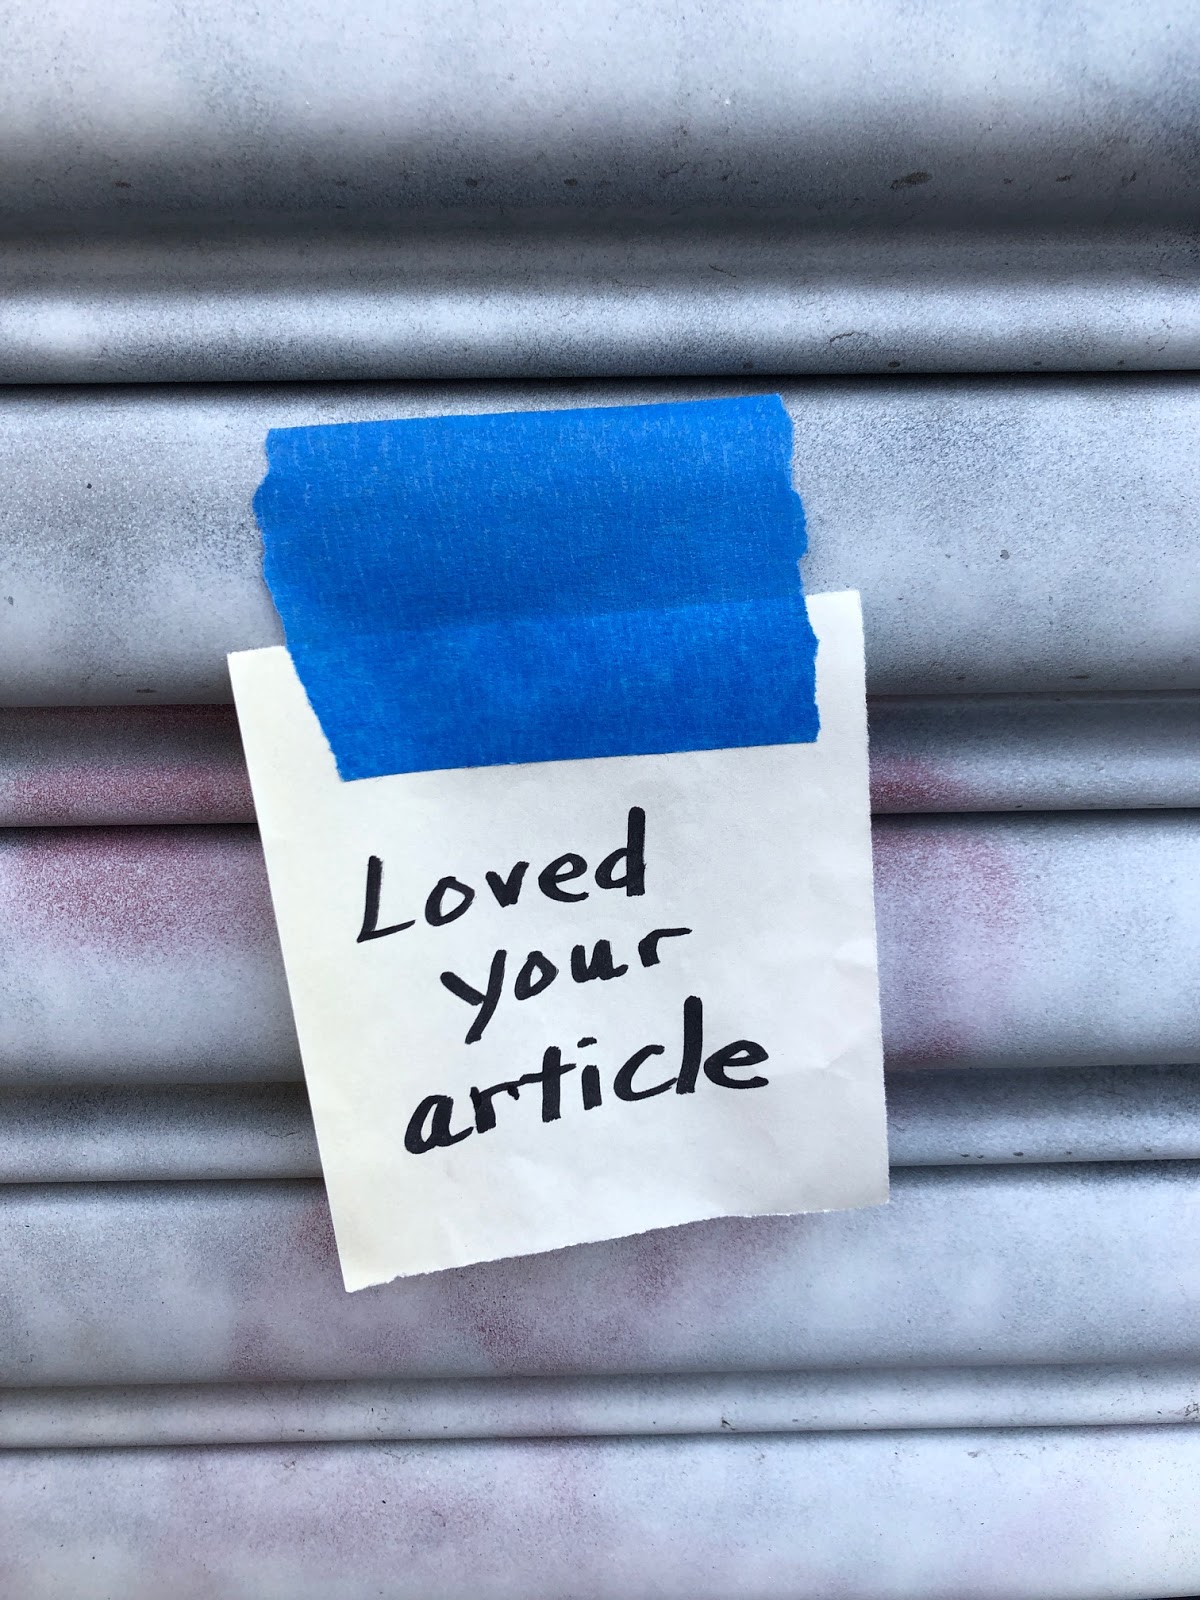 Loved
your
article